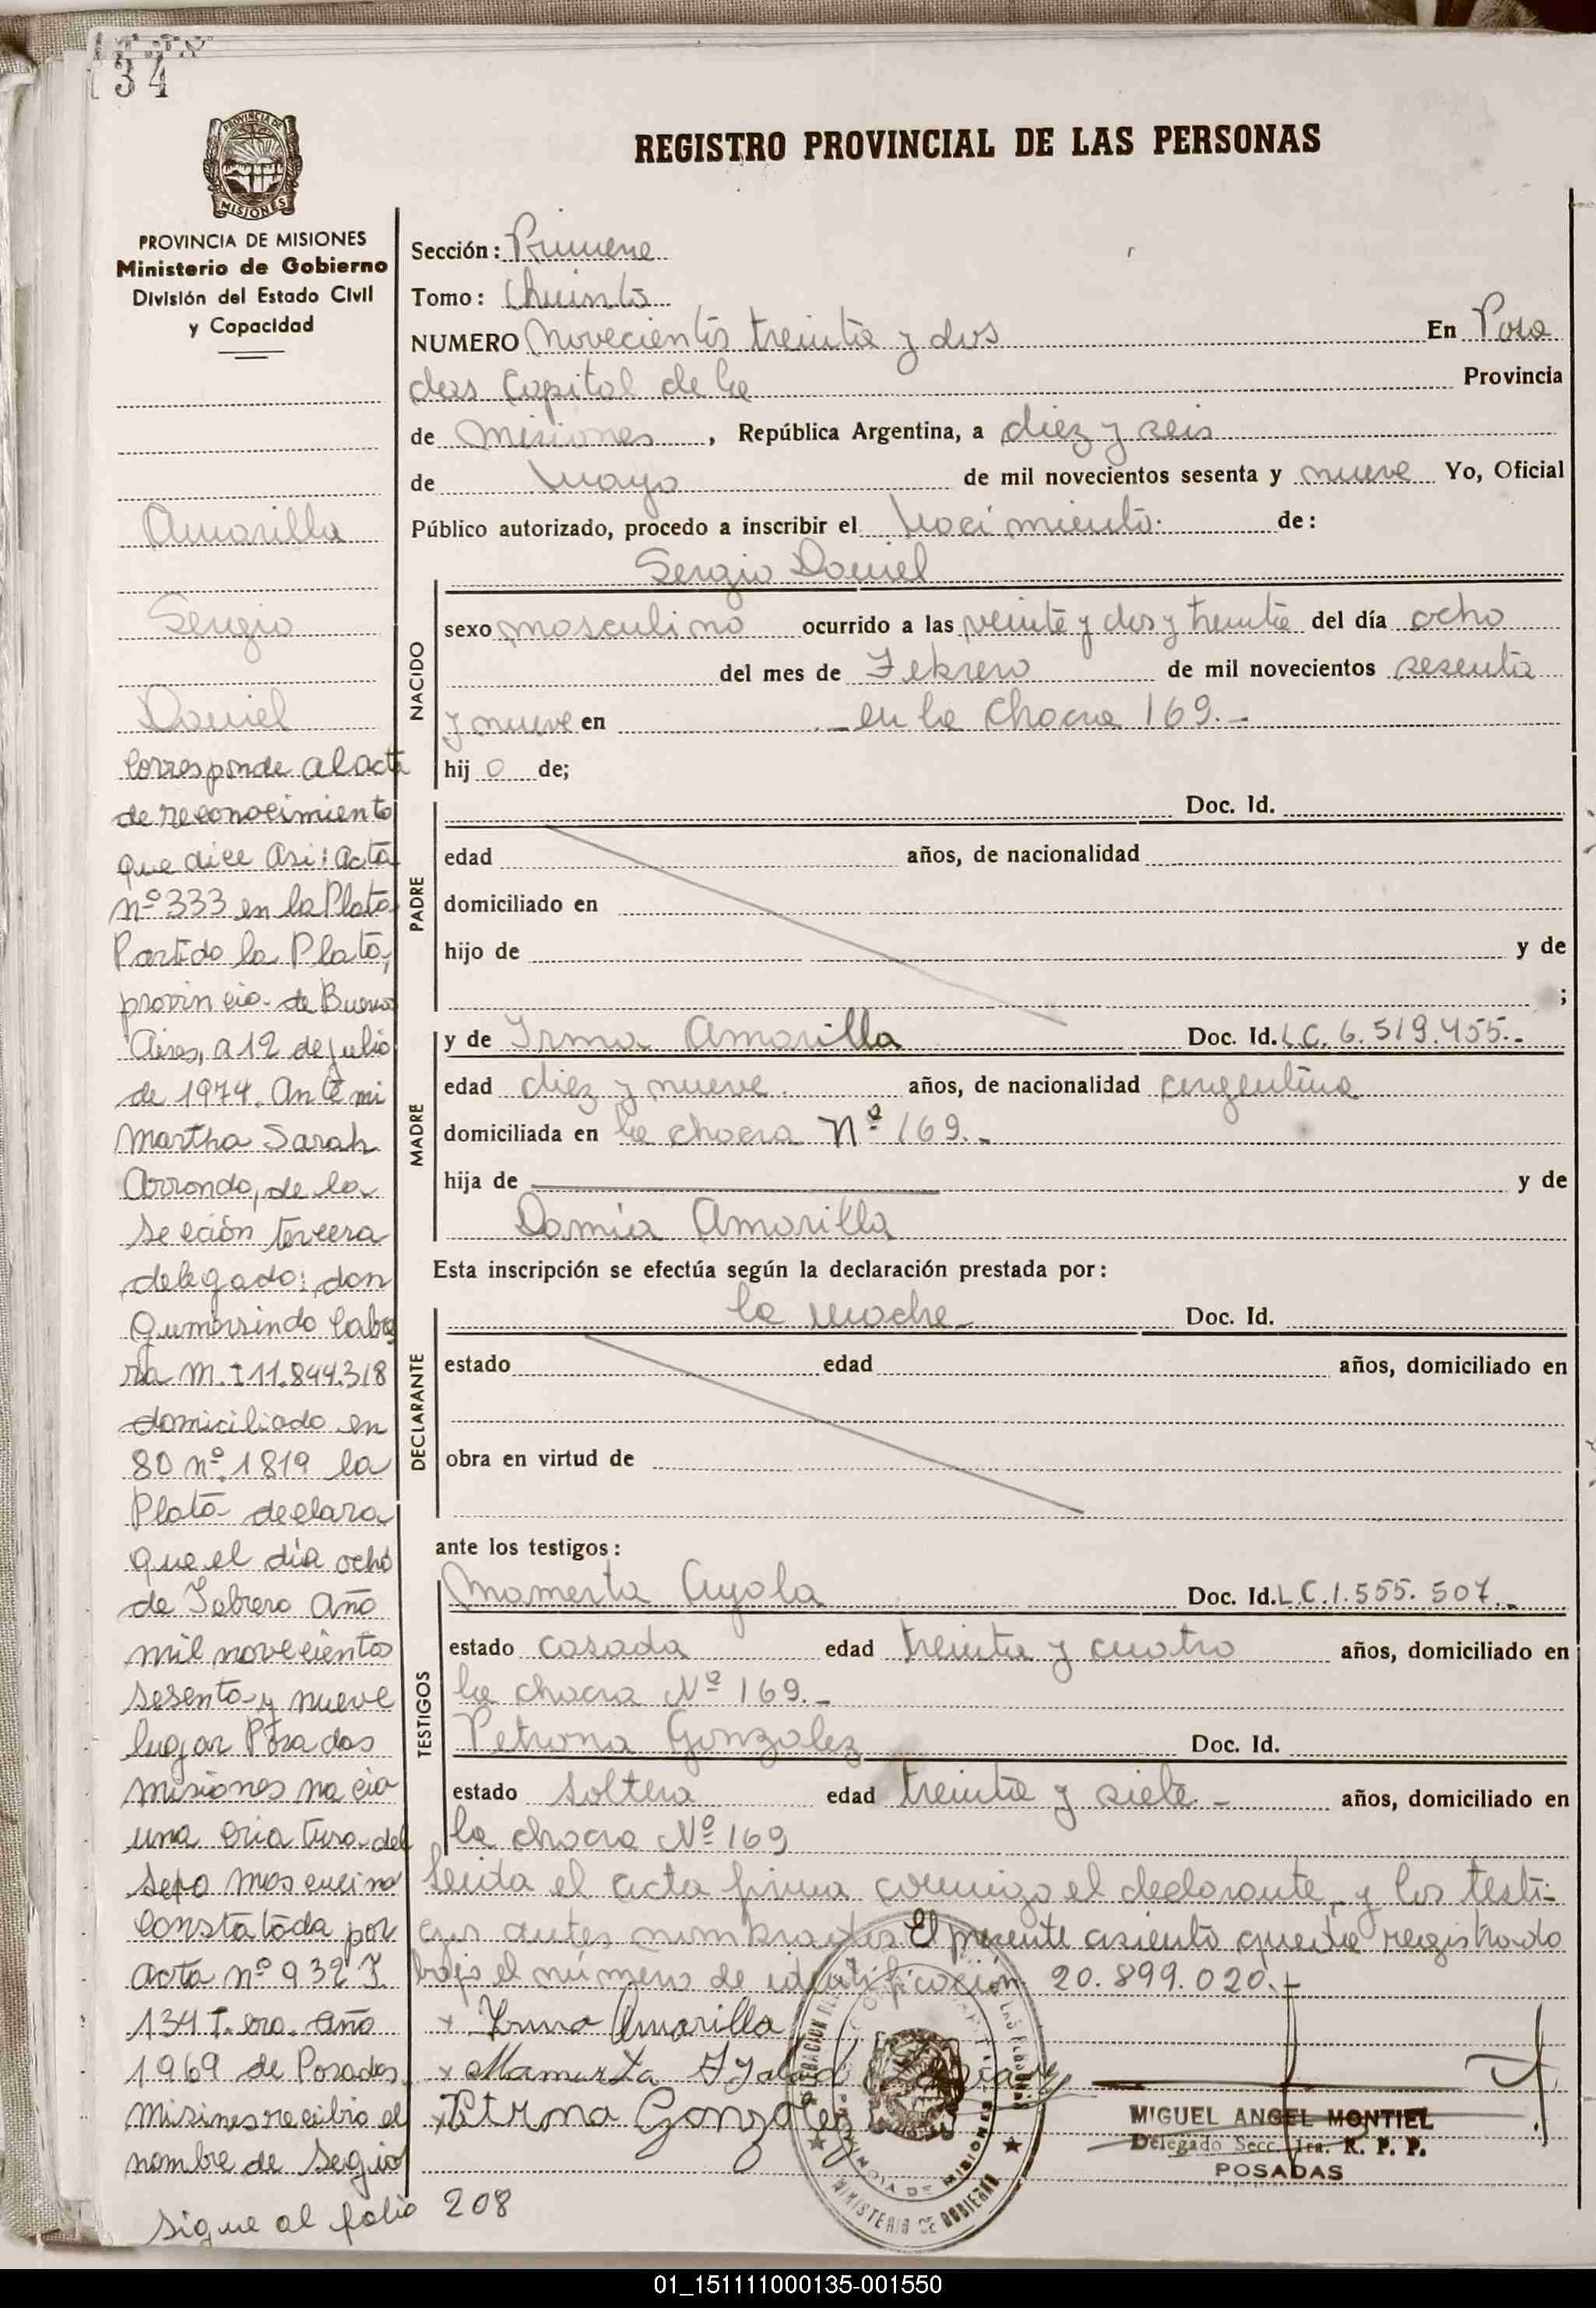 134
PROVINCIA DE
MISIONES
REGISTRO PROVINCIAL DE LAS PERSONAS
PROVINCIA DE MISIONES
Ministerio de Gobierno
División del Estado Civil
y Capacidad
Amarilla
Sergio
Daniel
Corresponde al acta
de reconocimiento
que dice Asi: Acta
nº 333 en la Plata
Partido la Plata,
provincia de Buenos
Aires, a 12 de julio
de 1974. Ante mi
Martha Sarah
Arrondo, de la
seción tercera
delegado: don
Gumersindo Cabre
ra M.I 11.844.318
domiciliado en
80 nº 1819 la
Plata declara
que el día ocho
de Febrero Año
mil novecientos
sesenta y nueve
lugar Posadas
misiones nacia
una criatura del
sexo masculino
constatada por
acta nº 932 F
134 T. ero. Año
1969 de Posadas
Misines recibio el
nombre de Segio
Sigue al folio 208
Sección: Primera
Tomo: Quinto
NUMERO Novecientos treinta y dos En Posa
das Capital de la Provincia
de Misiones, República Argentina, a diez y seis
de Mayo de mil novecientos sesenta y nueve Yo, Oficial
Público autorizado, procedo a inscribir el Nacimiento de:
Sergio Daniel
NACIDO
sexo masculino ocurrido a las veinte y dos y treinta del día ocho
del mes de Febrero de mil novecientos sesenta
y nueve en en la chacra 169.-
hijo de;
PADRE
Doc. Id.
edad años, de nacionalidad
domiciliado en
hijo de y de
;
MADRE
y de Irma Amarilla Doc. Id. L.C. 6.519.455.-
edad diez y nueve. años, de nacionalidad argentina
domiciliada en la chacra Nº 169.-
hija de y de
Damia Amarilla
Esta inscripción se efectúa según la declaración prestada por:
DECLARANTE
la madre Doc. Id.
estado edad años, domiciliado en
obra en virtud de
ante los testigos:
TESTIGOS
Mamerta Ayala Doc. Id. L.C. 1.555.507.-
estado casada edad treinta y cuatro años, domiciliado en
la chacra Nº 169.-
Petrona Gonzalez Doc. Id.
estado soltera edad treinta y siete - años, domiciliado en
la chacra Nº 169
Leida el acta firma conmigo el declarante y los testi-
gos antes nombrados El presente asiento queda registrado
bajo el número de identificación 20.899.020.-
x Irma Amarilla
x Mamerta Ayala
x Petrona Gonzalez
PROVINCIA DE MISIONES
MINISTERIO DE GOBIERNO
MIGUEL ANGEL MONTIEL
Delegado Secc. 1ra. R. P. P.
POSADAS
01_151111000135-001550